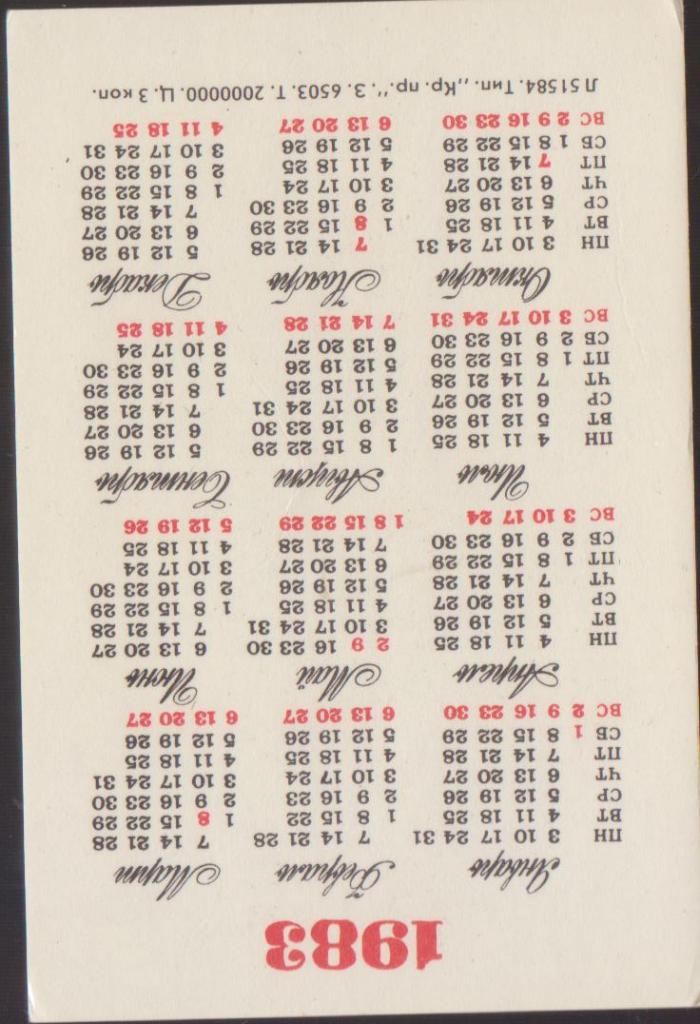 1983
Январь Февраль Март
ПН 3 10 17 24 31 7 14 21 28 7 14 21 28
ВТ 4 11 18 25 1 8 15 22 1 8 15 22 29
СР 5 12 19 26 2 9 16 23 2 9 16 23 30
ЧТ 6 13 20 27 3 10 17 24 3 10 17 24 31
ПТ 7 14 21 28 4 11 18 25 4 11 18 25
СБ 1 8 15 22 29 5 12 19 26 5 12 19 26
ВС 2 9 16 23 30 6 13 20 27 6 13 20 27
Апрель Май Июнь
ПН 4 11 18 25 2 9 16 23 30 6 13 20 27
ВТ 5 12 19 26 3 10 17 24 31 7 14 21 28
СР 6 13 20 27 4 11 18 25 1 8 15 22 29
ЧТ 7 14 21 28 5 12 19 26 2 9 16 23 30
ПТ 1 8 15 22 29 6 13 20 27 3 10 17 24
СБ 2 9 16 23 30 7 14 21 28 4 11 18 25
ВС 3 10 17 24 1 8 15 22 29 5 12 19 26
Июль Август Сентябрь
ПН 4 11 18 25 1 8 15 22 29 5 12 19 26
ВТ 5 12 19 26 2 9 16 23 30 6 13 20 27
СР 6 13 20 27 3 10 17 24 31 7 14 21 28
ЧТ 7 14 21 28 4 11 18 25 1 8 15 22 29
ПТ 1 8 15 22 29 5 12 19 26 2 9 16 23 30
СБ 2 9 16 23 30 6 13 20 27 3 10 17 24
ВС 3 10 17 24 31 7 14 21 28 4 11 18 25
Октябрь Ноябрь Декабрь
ПН 3 10 17 24 31 7 14 21 28 5 12 19 26
ВТ 4 11 18 25 1 8 15 22 29 6 13 20 27
СР 5 12 19 26 2 9 16 23 30 7 14 21 28
ЧТ 6 13 20 27 3 10 17 24 1 8 15 22 29
ПТ 7 14 21 28 4 11 18 25 2 9 16 23 30
СБ 1 8 15 22 29 5 12 19 26 3 10 17 24 31
ВС 2 9 16 23 30 6 13 20 27 4 11 18 25
Л 51584. Тип. „Кр. пр.". З. 6503. Т. 2000000. Ц. 3 коп.